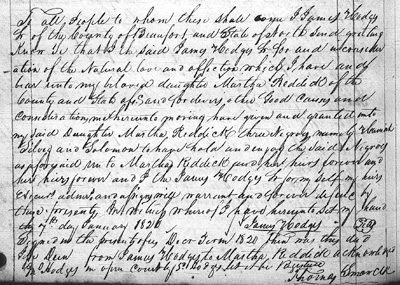 To all People to whom these shall come I James Hodges
of the County of Beaufort, and State of North send greeting
Know Ye that I the said James Hodges for and in consider
ation of the Natural love and affection which I have and
bear unto my beloved daughter Martha Reddick of the
County and State aforesaid for divers other Good Causes and
Consideration, me thereunto moving have given and granted unto
my said Daughter Martha Reddick Three Negroes, namely
and Solomon to have hold and enjoy the said Negroes
as aforesaid to Martha Reddick and her heirs forever and
her heirs forever and I the James Hodges for my self my heirs
Execut admrs and assigns will warrant and forever defend by
these presents, In Witness whereof I have hereunto set my hand
7th day January 1820 James Hodges
Signed in the presents of Decr Term 1820 then was this
from James Hodges to Martha Reddick acknowledged
by Hodges in open court let it be
Thomas